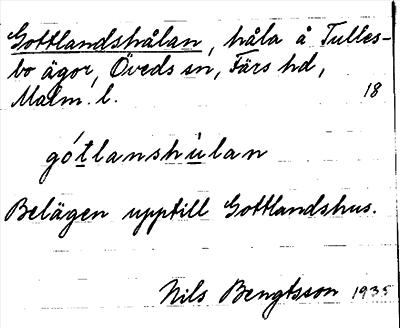 Gottlandshålan, håla å Tulles-
bo ägor, Öveds sn, Färs hd,
Malm. l. 18
gótlanshùlan
Belägen upptill Gottlandshus.
Nils Bengtsson 1935